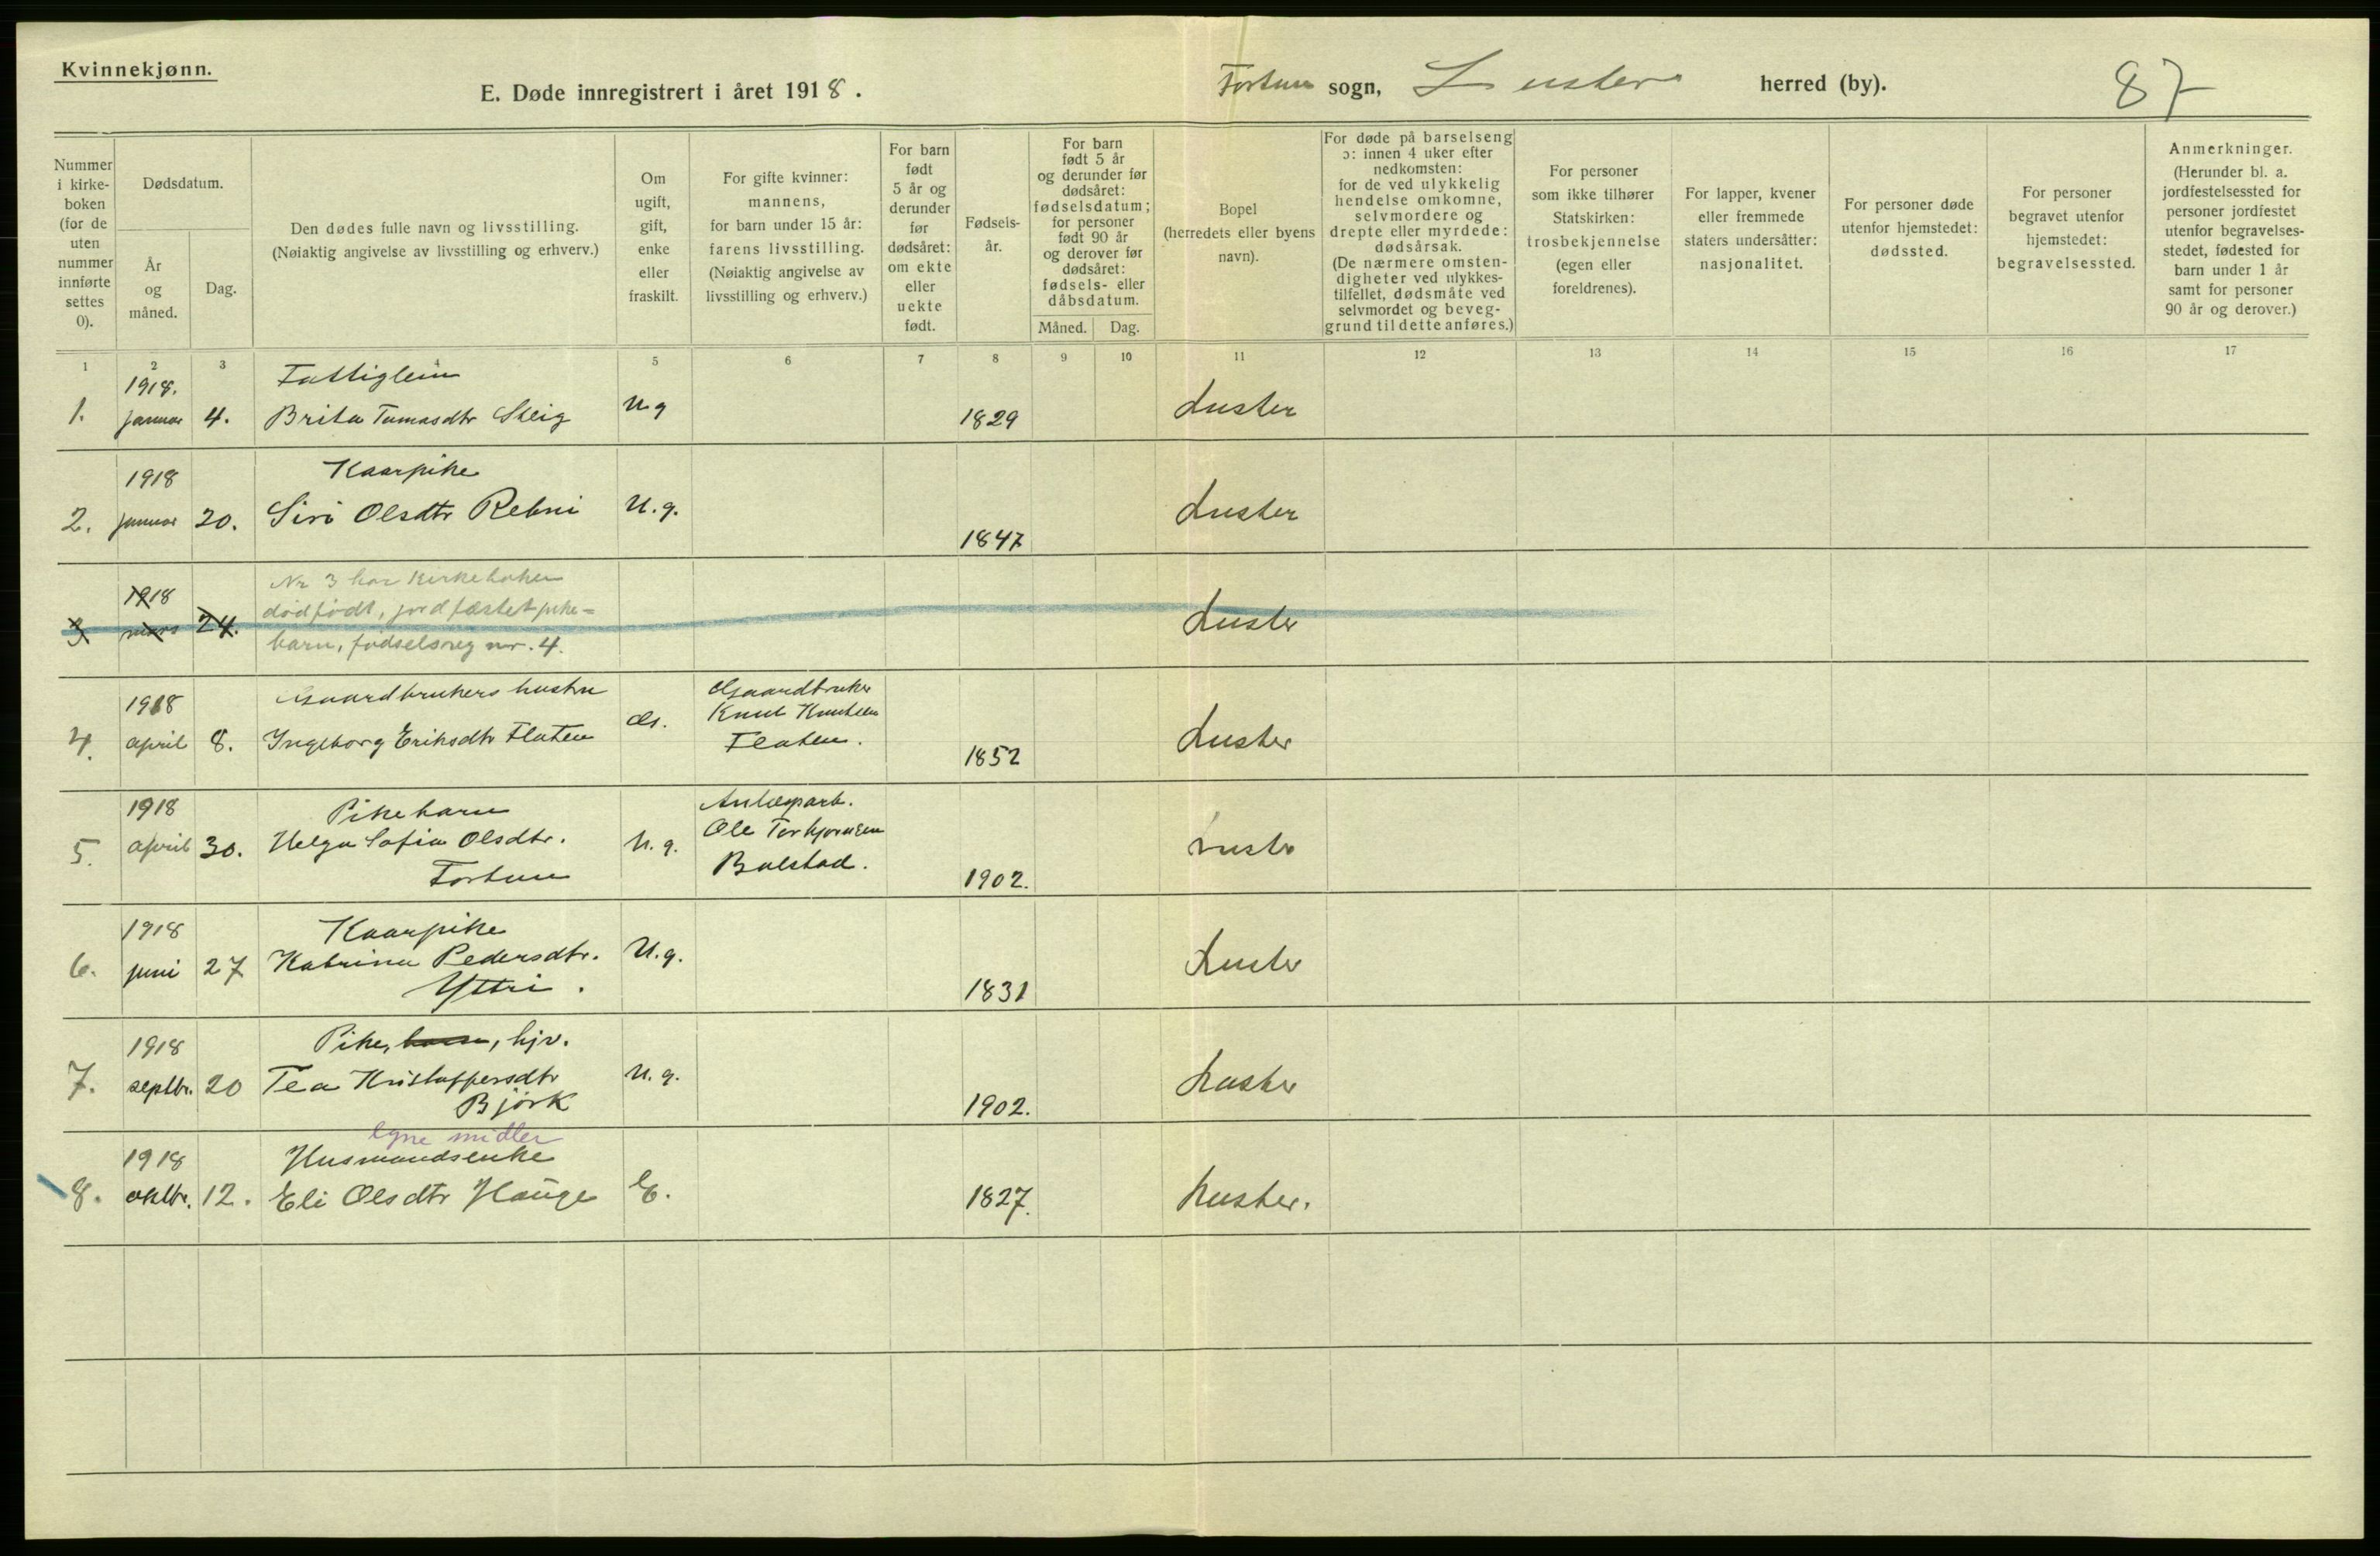 Kvinnekjønn.
E. Døde innregistrert i året 1918.
Fortun sogn, Luster herred (by).
87
Nummer i kirke- boken (for de uten nummer innførte settes 0).
Dødsdatum.
År og måned.
Dag.
Den dødes fulle navn og livsstilling.
(Nøiaktig angivelse av livsstilling og erhverv.)
Om ugift, gift, enke eller fraskilt.
For gifte kvinner: mannens, for barn under 15 år: farens livsstilling. (Nøiaktig angivelse av livsstilling og erhverv.)
For barn født 5 år og derunder før dødsåret: om ekte eller uekte født.
Fødsels- år.
For barn født 5 år og derunder før dødsåret: fødselsdatum; for personer født 90 år og derover før dødsåret: fødsels- eller dåbsdatum.
Måned. Dag.
Bopel (herredets eller byens navn).
For døde på barselseng ɔ: innen 4 uker efter nedkomsten: for de ved ulykkelig hendelse omkomne, selvmordere og drepte eller myrdede: dødsårsak. (De nærmere omsten- digheter ved ulykkes- tilfellet, dødsmåte ved selvmordet og beveg- grund til dette anføres.)
For personer som ikke tilhører Statskirken: trosbekjennelse (egen eller foreldrenes).
For lapper, kvener eller fremmede staters undersåtter: nasjonalitet.
For personer døde utenfor hjemstedet: dødssted.
For personer begravet utenfor hjemstedet: begravelsessted.
Anmerkninger. (Herunder bl. a. jordfestelsessted for personer jordfestet utenfor begravelses- stedet, fødested for barn under 1 år samt for personer 90 år og derover.)
1 2 3 4 5 6 7 8 9 10 11 12 13 14 15 16 17
1918. Fattiglem
1. januar 4. Brita Tomasdtr Skeig Ug 1829 Luster
1918 Kaarpike
2. januar 20. Siri Olsdtr Rebni U.g. 1847 Luster
1918 Nr 3 har Kirkeboken
3 mars 24. dødfødt, jordfæstet pike=
barn, fødselsreg nr. 4. Luster
1918 Gaardbrukers hustru Gaardbruker
4. april 8. Ingeborg Eriksdtr Flaten G. Knut Knutsen
Flaten. 1852 Luster
1918 Pikebarn Anlægsarb.
5. april 30. Helga Sofia Olsdtr. U.g. Ole Torbjørnsen
Fortun Bolstad. 1902. Luster
1918 Kaarpike
6. juni 27 Katrina Pedersdtr. U.g.
Yttri. 1831 Luster
1918 Pike, barn, hjv.
7. septbr. 20 Tea Kristoffersdtr U.g.
Bjørk 1902. Luster
Egne midler
1918 Husmandsenke
8. oktbr. 12. Eli Olsdtr Hauge E. 1827. Luster.